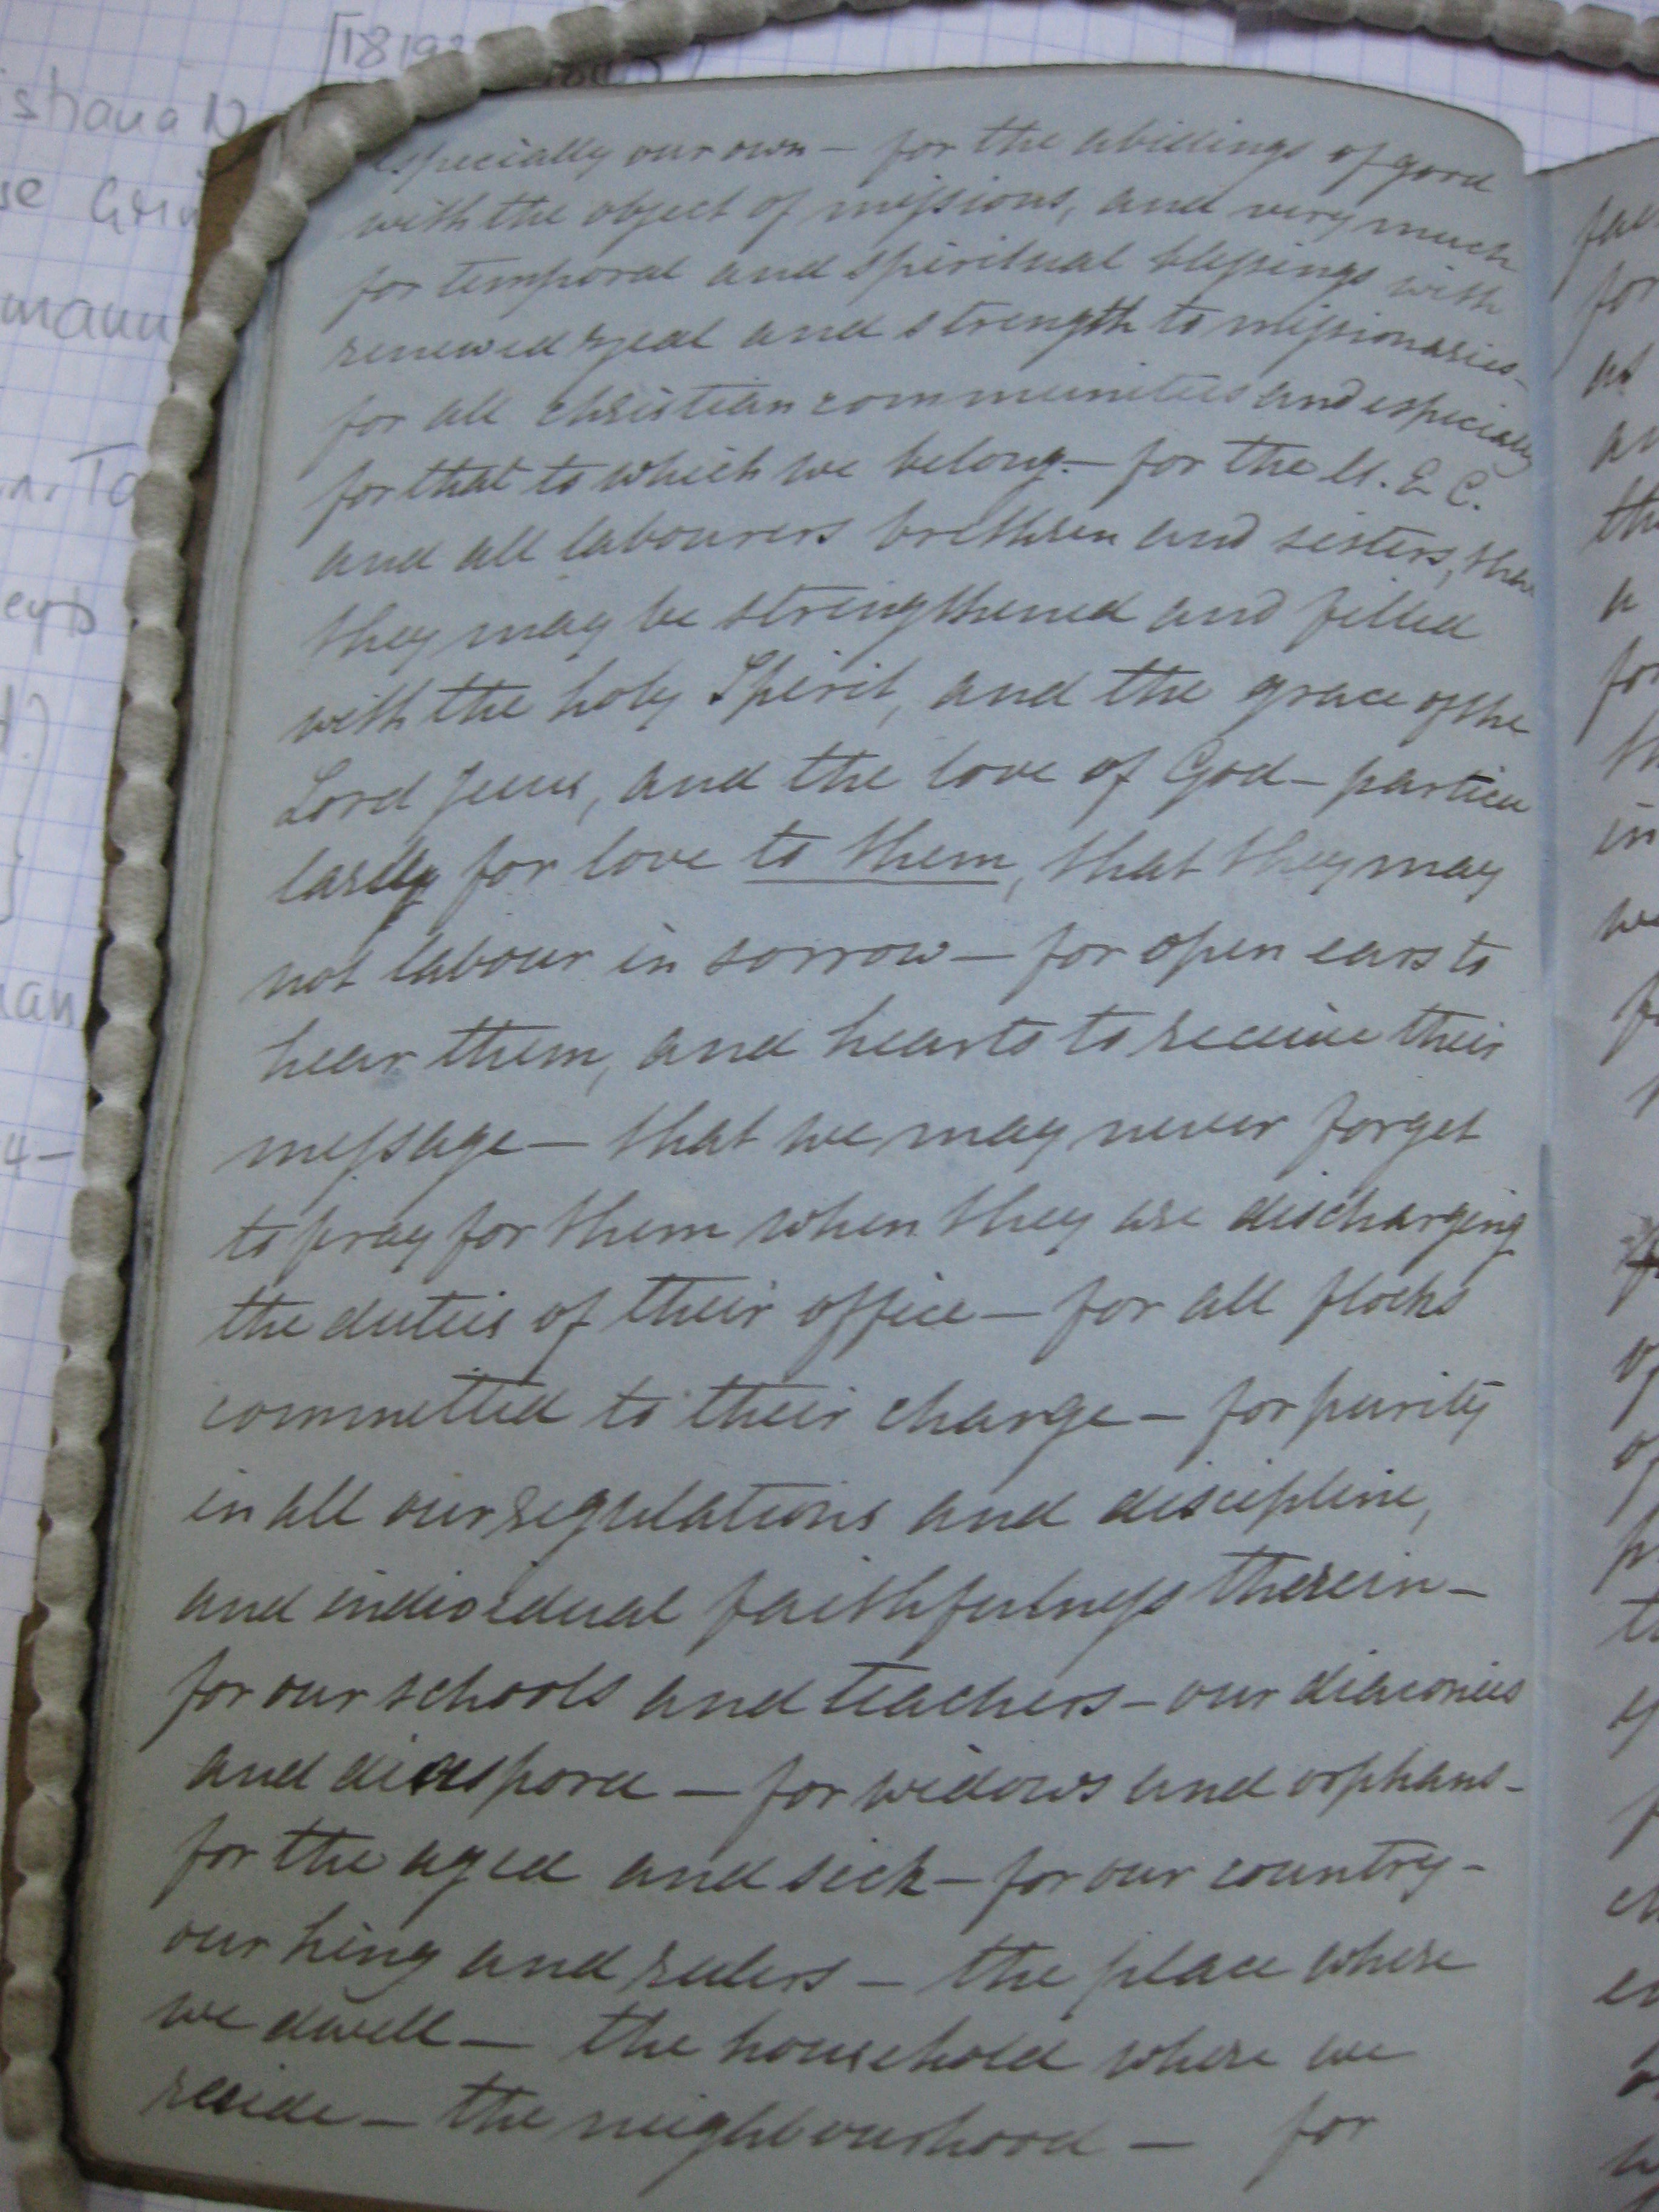 [1819
ishana N
se Grim
mann
. To
eyts
d.)
nan
4-
especially our own – for the abidings of good
with the object of missions, and very much
for temporal and spiritual blessings with
renewed zeal and strength to missionaries –
for all christian communities and especially
for that to which we belong – for the U. E C.
and all labourers brethren and sisters, that
they may be strengthened and filled
with the holy Spirit, and the grace of the
Lord Jesus, and the love of God – particu
larly for love to them, that they may
not labour in sorrow – for open ears to
hear them, and hearts to receive their
message – that we may never forget
to pray for them when they are discharging
the duties of their office – for all flocks
committed to their charge – for purity
in all our regulations and discipline,
and individual faithfulness therein –
for our schools and teachers – our diaconies
and diaspora – for widows and orphans –
for the aged and sick – for our country –
our king and rulers – the place where
we dwell – the household where we
reside – the neighbourhood – for